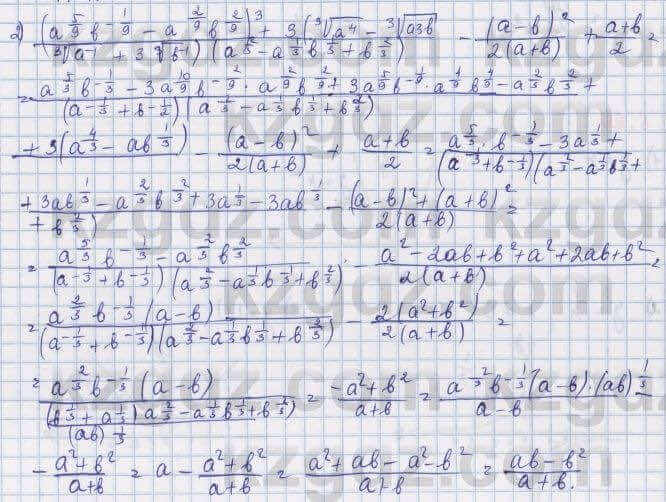 2) ((a^(5/9) b^(-1/9) - a^(2/9) b^(2/9))^3 + 3(∛a⁴ - ∛a3b)) / ((∛a⁻¹ + 3√b⁻¹)(a^(2/3) - a^(1/3) b^(1/3) + b^(2/3))) - (a-b)²/2(a+b) + (a+b)/2 =
= (a^(5/3) b^(-1/3) - 3a^(10/9) b^(-2/9) · a^(2/9) b^(2/9) + 3a^(5/9) b^(-1/9) · a^(4/9) b^(4/9) - a^(2/3) b^(2/3) +) / ((a^(-1/3) + b^(-1/2))(a^(2/3) - a^(1/3) b^(1/3) + b^(2/3)))
+ 3(a^(4/3) - ab^(1/3)) - (a-b)²/2(a+b) + (a+b)/2 = (a^(5/3) · b^(-1/3) - 3a^(1/3) +) / ((a^(-1/3) + b^(-1/3))(a^(2/3) - a^(1/3) b^(1/3) +
+ 3ab^(1/3) - a^(2/3) b^(2/3) + 3a^(1/3) - 3ab^(1/3) / + b^(2/3)) - ((a-b)² + (a+b)²)/2(a+b) =
= (a^(5/3) b^(-1/3) - a^(2/3) b^(2/3)) / ((a^(-1/3) + b^(-1/3))(a^(2/3) - a^(1/3) b^(1/3) + b^(2/3))) - (a² - 2ab + b² + a² + 2ab + b²)/2(a+b) =
= a^(2/3) b^(-1/3) (a-b) / ((a^(-1/3) + b^(-1/3))(a^(2/3) - a^(1/3) b^(1/3) + b^(2/3))) - 2(a²+b²)/2(a+b) =
= a^(2/3) b^(-1/3) (a-b) / ((b^(1/3) + a^(1/3)) a^(2/3) - a^(1/3) b^(1/3) + b^(2/3)) / (ab)^(1/3) = (-a²+b²)/(a+b) = a^(2/3) b^(-1/3) (a-b)·(ab)^(1/3) / (a-b)
- (a²+b²)/(a+b) = a - (a²+b²)/(a+b) = (a²+ab-a²-b²)/(a+b) = (ab-b²)/(a+b).